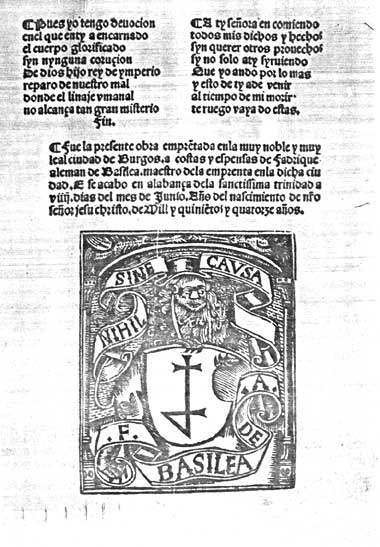 ¶Pues yo tengo deuocion
enel que enty a encarnado
el cuerpo glorificado
syn nynguna coruçion
De dios hijo rey de ymperio
reparo de nuestro mal
donde el linaje vmanal
no alcança tan gran misterio
Fin.
¶A ty señora en comiendo
todos mis dichos y hechos
syn querer otros prouechos
sy no solo aty syruiendo
Que yo ando por lo mas
y esto de ty ade venir
al tiempo de mi morir
te ruego vaya do estas.
¶Fue la presente obra emprẽtada enla muy noble y muy
leal ciudad de Burgos. a costas y espensas de Fadrique
aleman de Basilea. maestro dela emprenta enla dicha ciu
dad. E se acabo en alabança dela sanctissima trinidad a
viij. dias del mes de Junio. Año del nascimiento de nr̃o
señor jesu christo. de Mill y quiniẽtos y quatorze años.
NIHIL SINE CAVSA
.F. A. DE
BASILEA